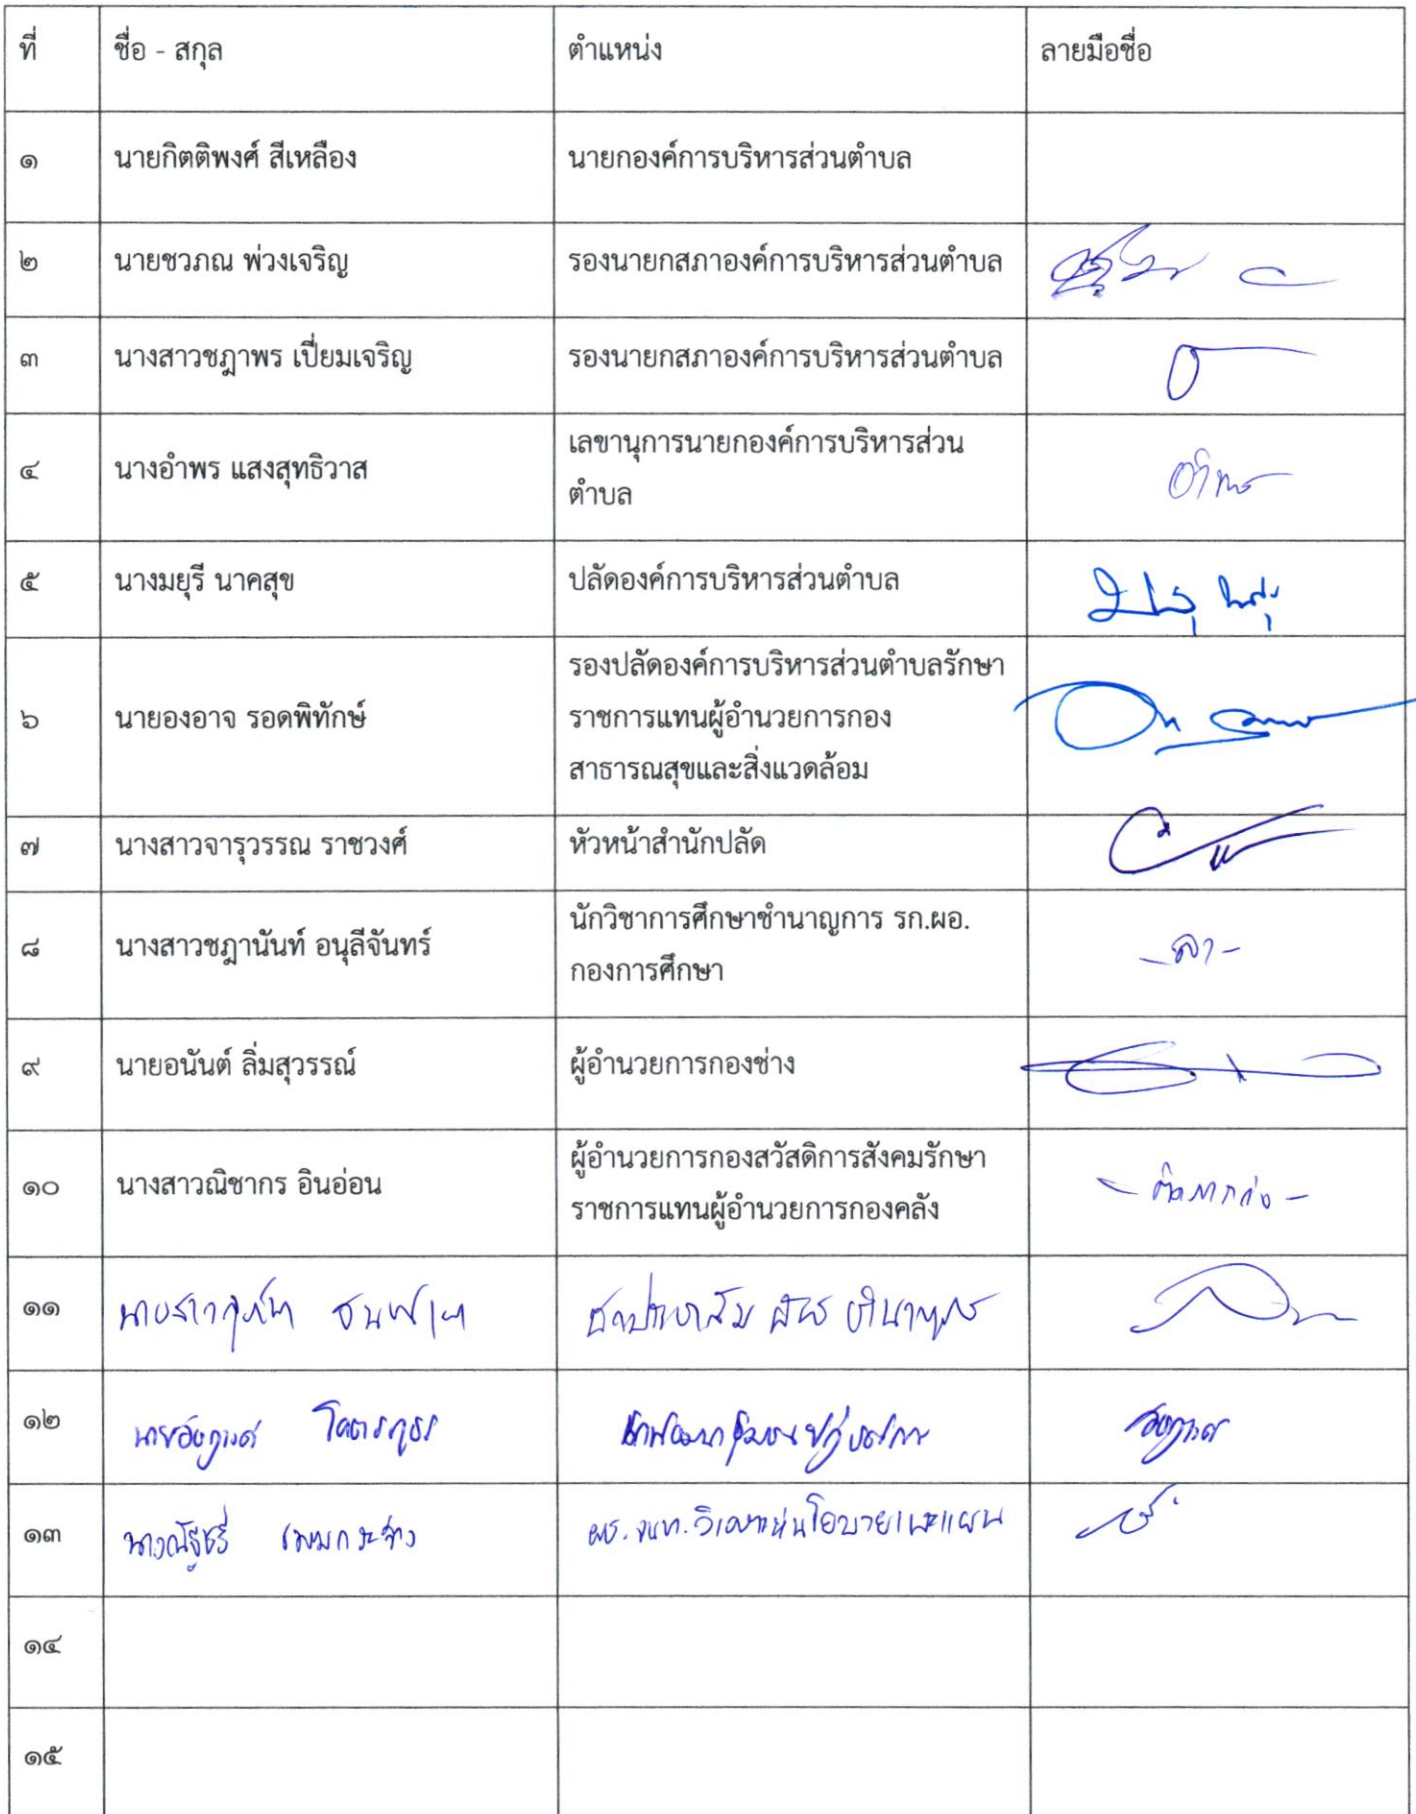 ที่ ชื่อ - สกุล ตำแหน่ง ลายมือชื่อ
๑ นายกิตติพงศ์ สีเหลือง นายกองค์การบริหารส่วนตำบล
๒ นายชวภณ พ่วงเจริญ รองนายกสภาองค์การบริหารส่วนตำบล
๓ นางสาวชฎาพร เปี่ยมเจริญ รองนายกสภาองค์การบริหารส่วนตำบล
๔ นางอำพร แสงสุทธิวาส เลขานุการนายกองค์การบริหารส่วน
ตำบล
อำพร
๕ นางมยุรี นาคสุข ปลัดองค์การบริหารส่วนตำบล
๖ นายองอาจ รอดพิทักษ์ รองปลัดองค์การบริหารส่วนตำบลรักษา
ราชการแทนผู้อำนวยการกอง
สาธารณสุขและสิ่งแวดล้อม
๗ นางสาวจารุวรรณ ราชวงศ์ หัวหน้าสำนักปลัด
๘ นางสาวชฎานันท์ อนุลีจันทร์ นักวิชาการศึกษาชำนาญการ รก.ผอ.
กองการศึกษา
-ลา-
๙ นายอนันต์ ลิ่มสุวรรณ์ ผู้อำนวยการกองช่าง
๑๐ นางสาวณิชากร อินอ่อน ผู้อำนวยการกองสวัสดิการสังคมรักษา
ราชการแทนผู้อำนวยการกองคลัง
- ติดภารกิจ -
๑๑ นางสาว
๑๒ นายอังกูรต์ โคตรภูธร นักพัฒนาชุมชนปฏิบัติการ
๑๓ ผช. จนท. วิเคราะห์นโยบายและแผน
๑๔
๑๕